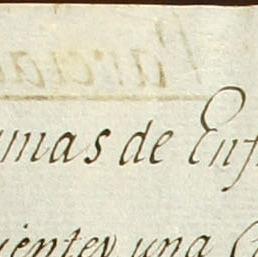 umas de Enf
uientes una C